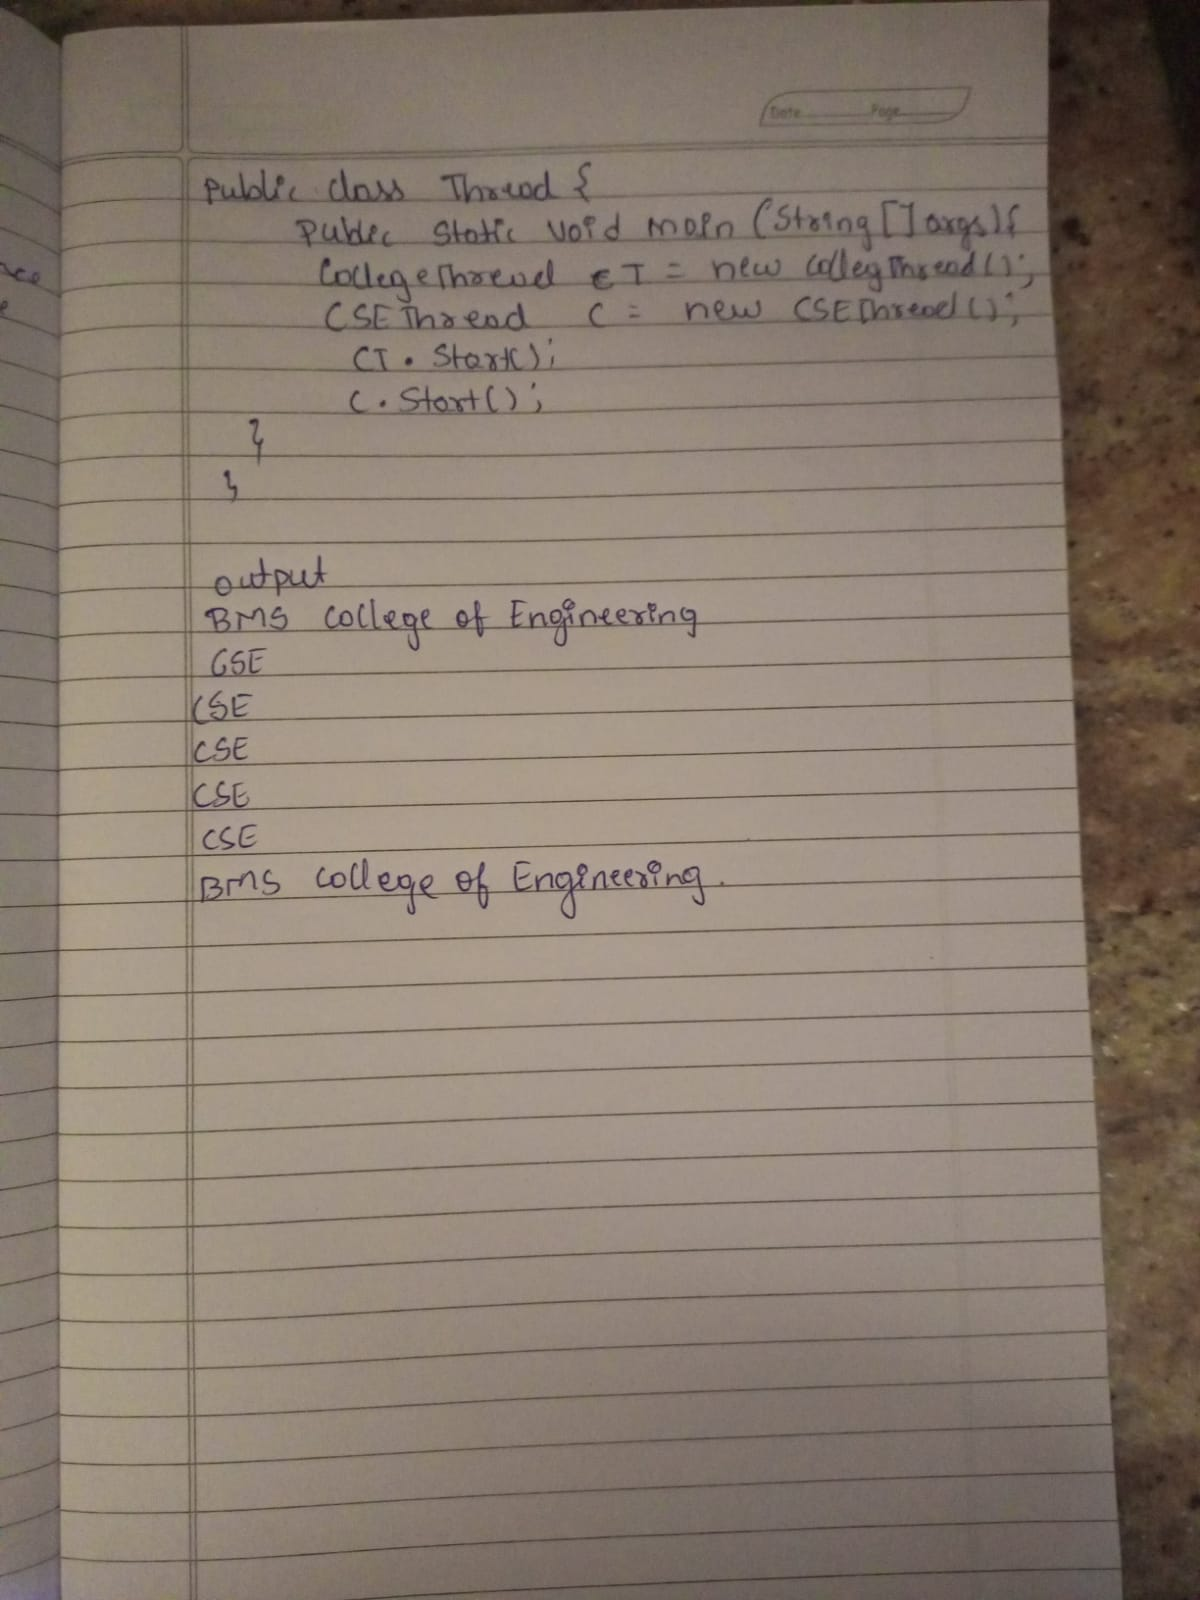 Date Page
Public class Thread {
Public Static void main (String [] args) {
CollegeThread CT = new CollegThread();
CSEThread C = new CSEThread();
CT. Start();
C. Start();
}
}
output
BMS College of Engineering
CSE
CSE
CSE
CSE
CSE
BMS College of Engineering.